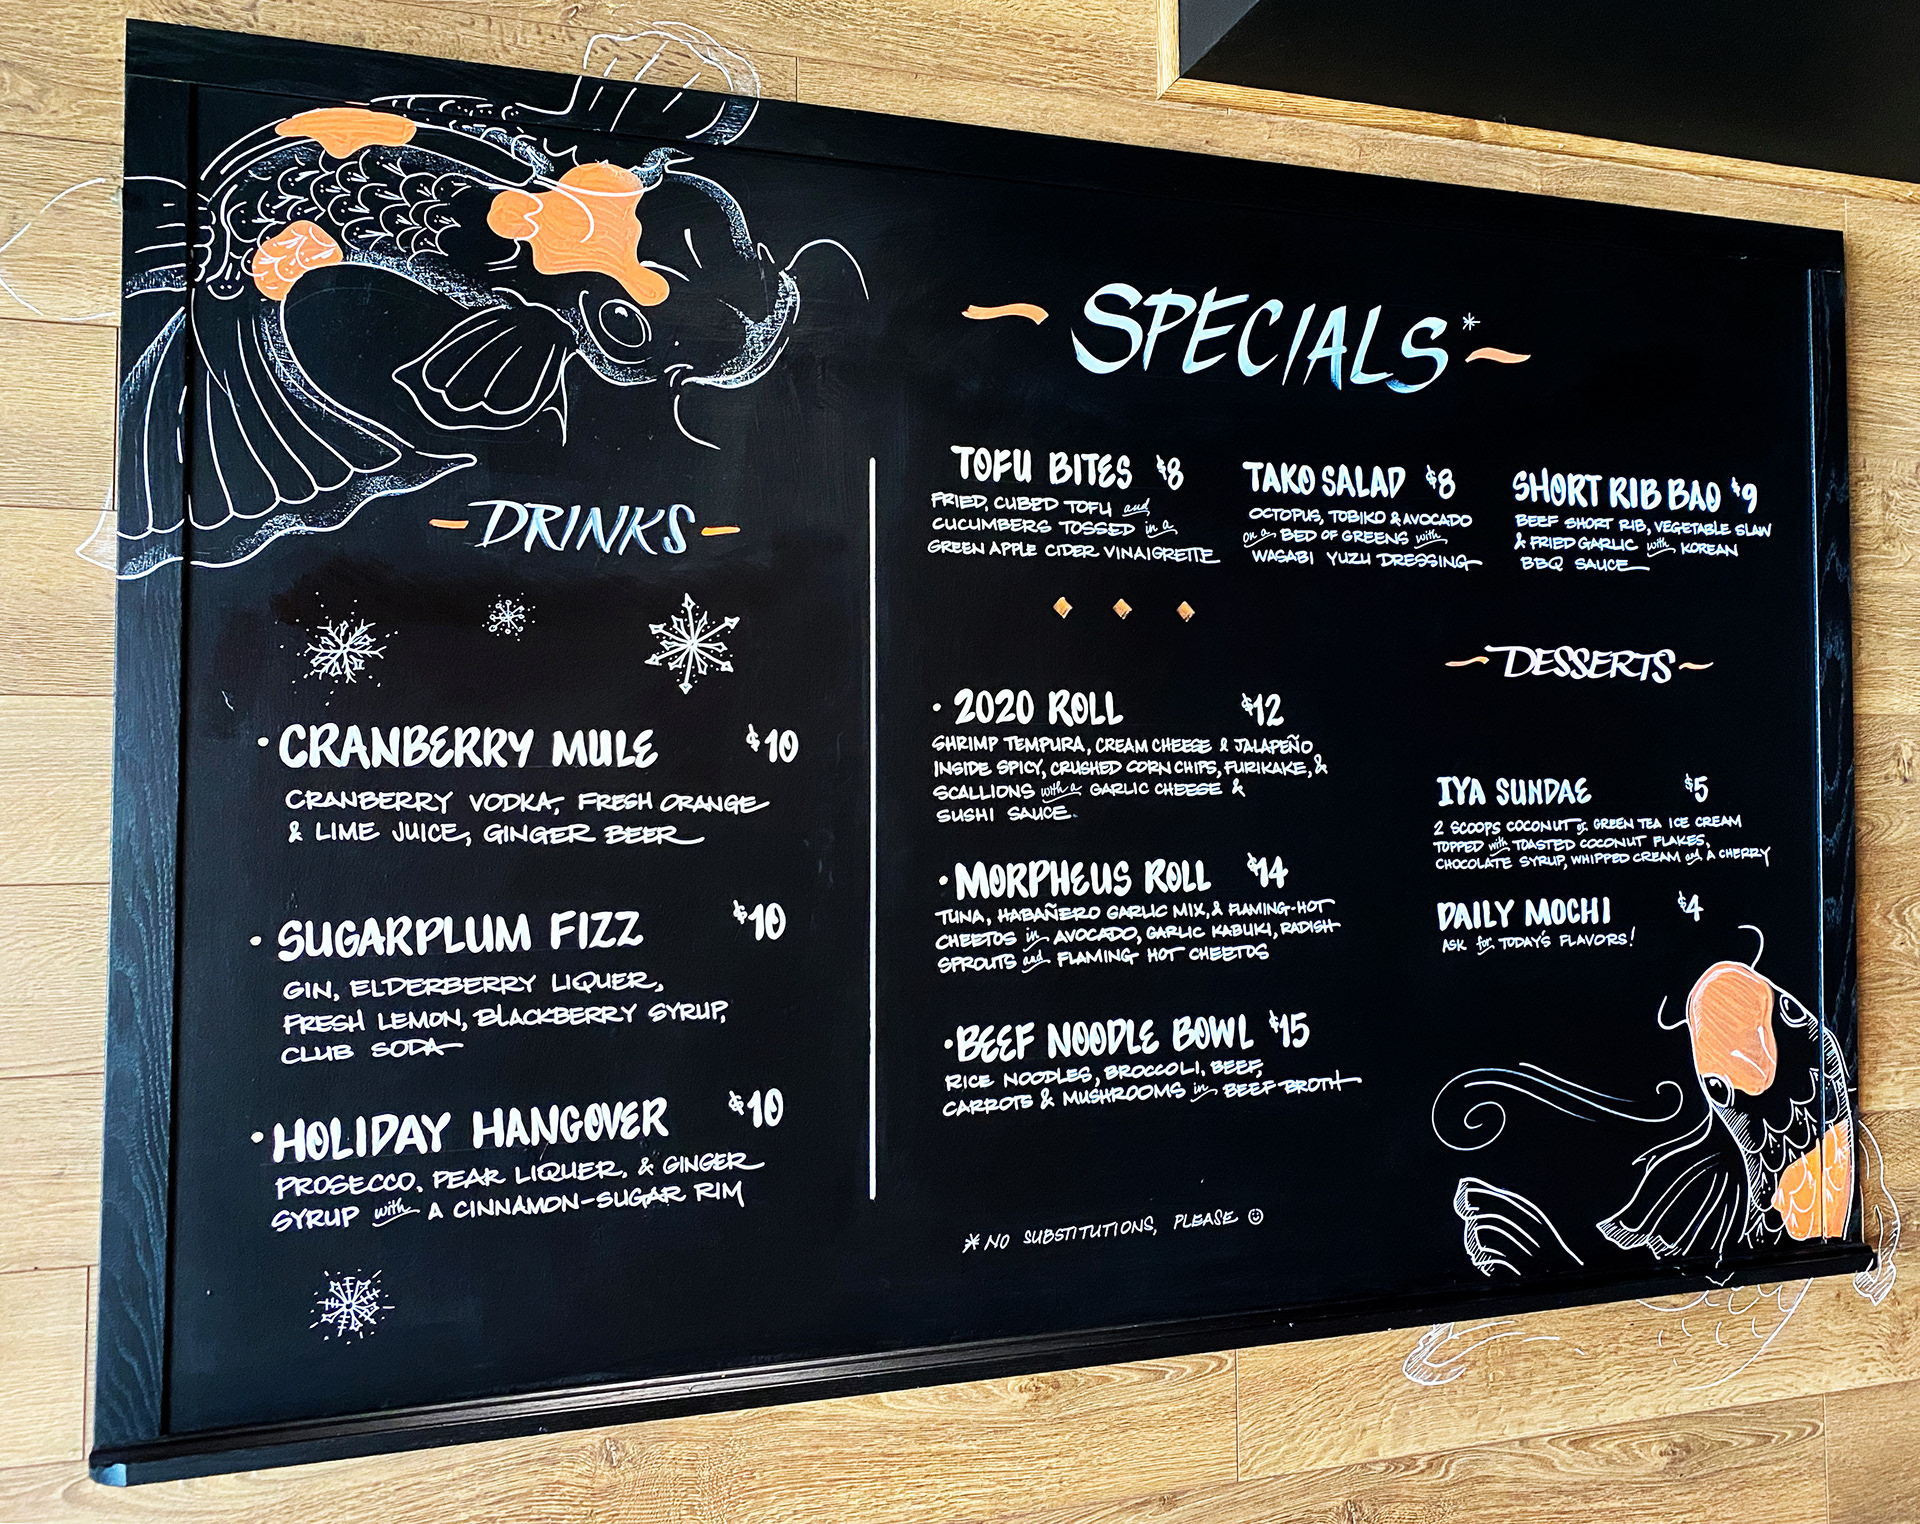 DRINKS
CRANBERRY MULE $10
CRANBERRY VODKA, FRESH ORANGE
& LIME JUICE, GINGER BEER
SUGARPLUM FIZZ $10
GIN, ELDERBERRY LIQUER,
FRESH LEMON, BLACKBERRY SYRUP,
CLUB SODA
HOLIDAY HANGOVER $10
PROSECCO, PEAR LIQUER, & GINGER
SYRUP with A CINNAMON-SUGAR RIM
SPECIALS*
TOFU BITES $8
FRIED, CUBED TOFU and
CUCUMBERS TOSSED in a
GREEN APPLE CIDER VINAIGRETTE
TAKO SALAD $8
OCTOPUS, TOBIKO & AVOCADO
on a BED OF GREENS with
WASABI YUZU DRESSING
SHORT RIB BAO $9
BEEF SHORT RIB, VEGETABLE SLAW
& FRIED GARLIC with KOREAN
BBQ SAUCE
2020 ROLL $12
SHRIMP TEMPURA, CREAM CHEESE & JALAPEÑO
INSIDE SPICY, CRUSHED CORN CHIPS, FURIKAKE, &
SCALLIONS with a GARLIC CHEESE &
SUSHI SAUCE
MORPHEUS ROLL $14
TUNA, HABAÑERO GARLIC MIX, & FLAMING-HOT
CHEETOS in AVOCADO, GARLIC KABUKI, RADISH
SPROUTS and FLAMING HOT CHEETOS
BEEF NOODLE BOWL $15
RICE NOODLES, BROCCOLI, BEEF,
CARROTS & MUSHROOMS in BEEF BROTH
*NO SUBSTITUTIONS, PLEASE ☺
DESSERTS
IYA SUNDAE $5
2 SCOOPS COCONUT or GREEN TEA ICE CREAM
TOPPED with TOASTED COCONUT FLAKES,
CHOCOLATE SYRUP, WHIPPED CREAM and A CHERRY
DAILY MOCHI $4
ASK for TODAY'S FLAVORS!